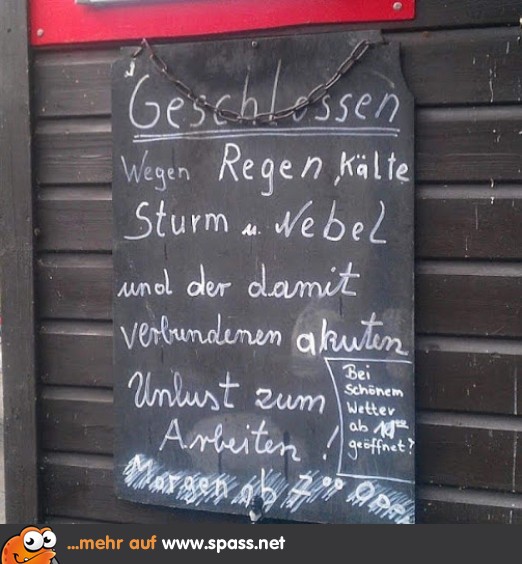 Geschlossen
Wegen Regen, Kälte
Sturm u. Nebel
und der damit
verbundenen akuten
Unlust zum
Arbeiten!
Bei
schönem
Wetter
ab 11⁰⁰
geöffnet?
Morgen ab 7⁰⁰
...mehr auf www.spass.net